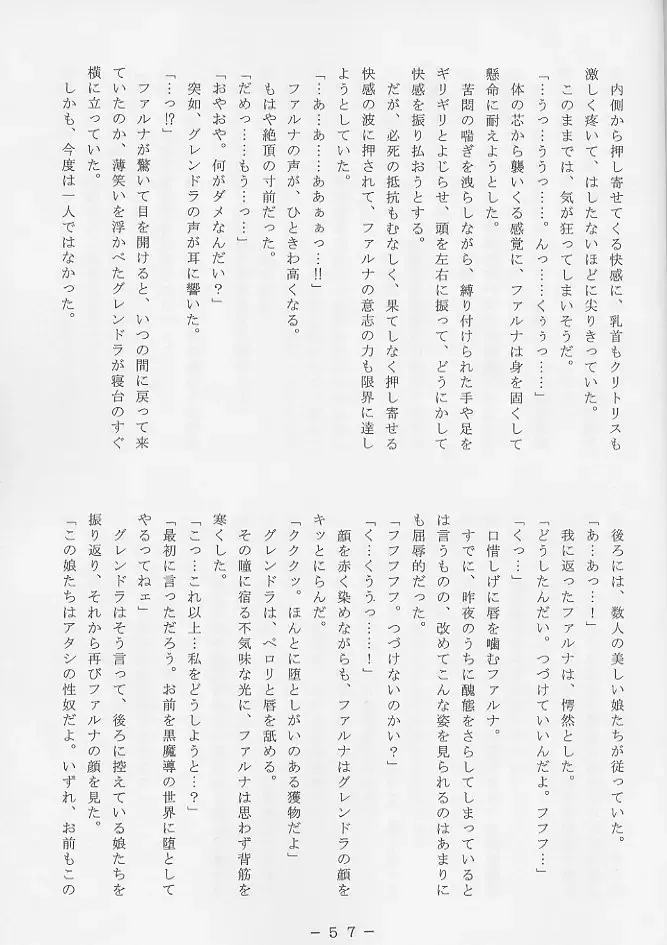 内側から押し寄せてくる快感に、乳首もクリトリスも
激しく疼いて、はしたないほどに尖りきっていた。
　このままでは、気が狂ってしまいそうだ。
「…うっ…ううっ……。んっ……くぅぅっ……」
　体の芯から襲いくる感覚に、ファルナは身を固くして
懸命に耐えようとした。
　苦悶の喘ぎを洩らしながら、縛り付けられた手や足を
ギリギリとよじらせ、頭を左右に振って、どうにかして
快感を振り払おうとする。
　だが、必死の抵抗もむなしく、果てしなく押し寄せる
快感の波に押されて、ファルナの意志の力も限界に達し
ようとしていた。
「…あ…あ……ああぁぁっ…!!」
　ファルナの声が、ひときわ高くなる。
　もはや絶頂の寸前だった。
「だめっ……もう…っ…」
「おやおや。何がダメなんだい？」
　突如、グレンドラの声が耳に響いた。
「…っ!?」
　ファルナが驚いて目を開けると、いつの間に戻って来
ていたのか、薄笑いを浮かべたグレンドラが寝台のすぐ
横に立っていた。
　しかも、今度は一人ではなかった。
　後ろには、数人の美しい娘たちが従っていた。
「あ…あっ…！」
　我に返ったファルナは、愕然とした。
「どうしたんだい。つづけていいんだよ。フフフ…」
「くっ…」
　口惜しげに唇を噛むファルナ。
　すでに、昨夜のうちに醜態をさらしてしまっていると
は言うものの、改めてこんな姿を見られるのはあまりに
も屈辱的だった。
「フフフフフ。つづけないのかい？」
「く…くううっ……！」
　顔を赤く染めながらも、ファルナはグレンドラの顔を
キッとにらんだ。
「ククククッ。ほんとに堕としがいのある獲物だよ」
　グレンドラは、ペロリと唇を舐める。
　その瞳に宿る不気味な光に、ファルナは思わず背筋を
寒くした。
「こっ…これ以上…私をどうしようと…？」
「最初に言っただろう。お前を黒魔導の世界に堕として
やるってねェ」
　グレンドラはそう言って、後ろに控えている娘たちを
振り返り、それから再びファルナの顔を見た。
「この娘たちはアタシの性奴だよ。いずれ、お前もこの
－５７－